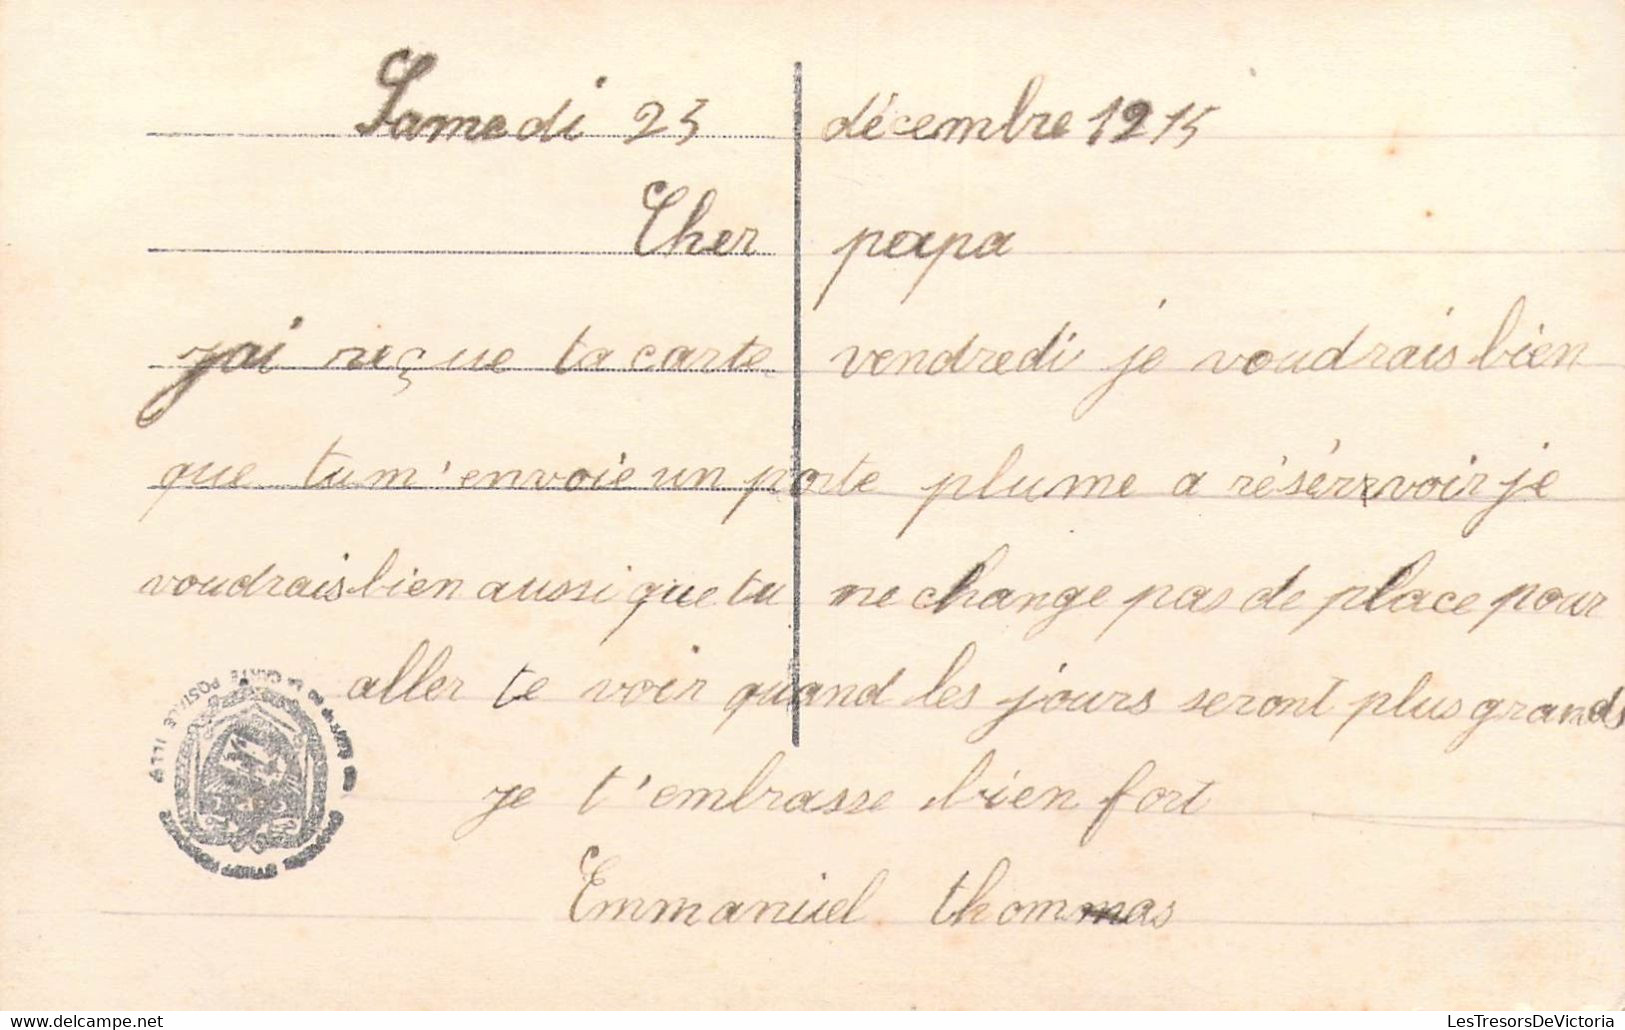 Samedi 25 décembre 1915
Cher papa
jai reçue ta carte vendredi je voudrais bien
que tu m'envoie un porte plume a résérrvoir je
voudrais bien aussi que tu ne change pas de place pour
aller te voir quand les jours seront plus grands
je t'embrasse bien fort
Emmanuel thommas
LesTresorsDeVictoria